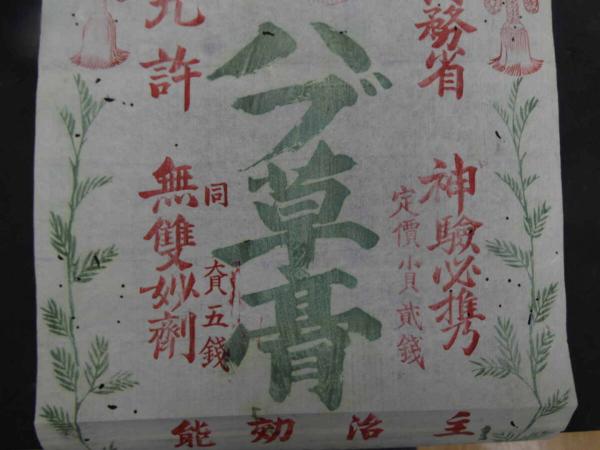 務省
神驗必携
定價小貝貳錢
ハブ草膏
同
大貝五錢
允許
無雙妙劑
主治効能